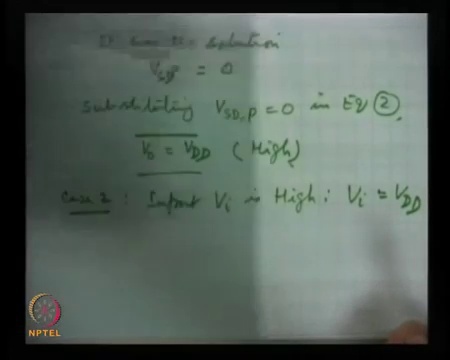 It has the solution
V_SD,P = 0
Substituting V_SD,P = 0 in Eq ②,
V_0 = V_DD (High)
Case 2 : Input V_i is High; V_i = V_DD
NPTEL